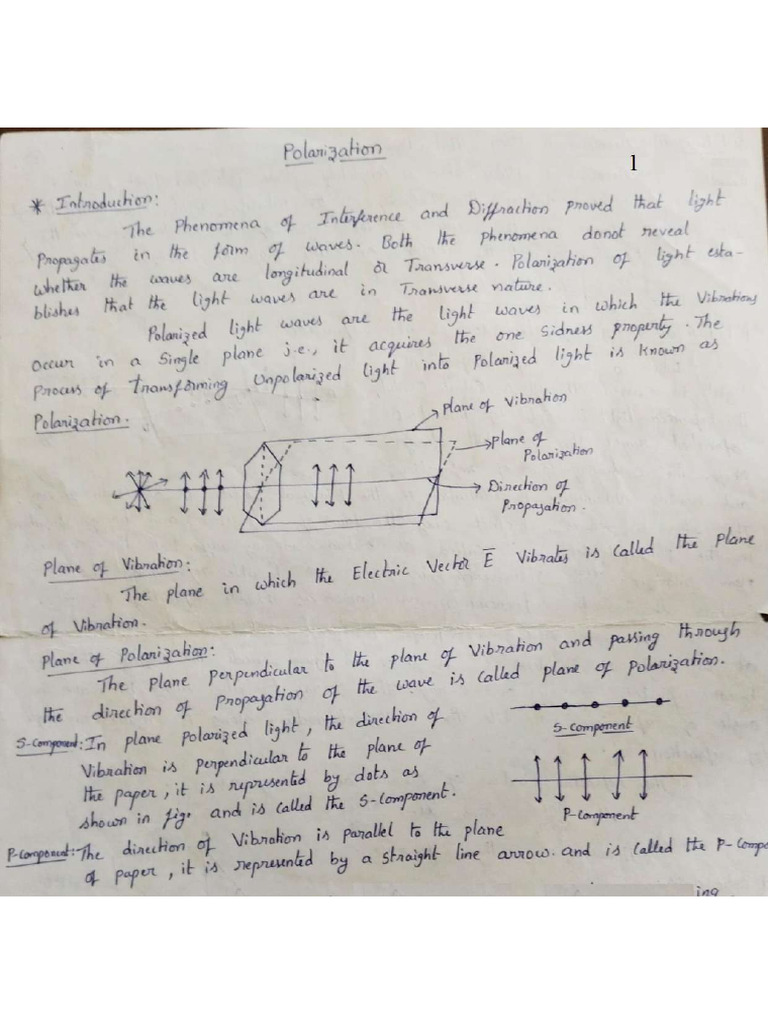 Polarization
1
* Introduction:
The Phenomena of Interference and Diffraction proved that light
Propagates in the form of waves. Both the phenomena donot reveal
whether the waves are longitudinal or Transverse. Polarization of light esta-
blishes that the light waves are in Transverse nature.
Polarized light waves are the light waves in which the Vibrations
occur in a Single plane i.e., it acquires the one Sidness property. The
Process of Transforming Unpolarized light into Polarized light is known as
Polarization.
Plane of Vibration
Plane of
Polarization
Direction of
Propagation.
Plane of Vibration:
The plane in which the Electric Vector E̅ Vibrates is called the Plane
of Vibration.
Plane of Polarization:
The plane perpendicular to the plane of Vibration and passing through
the direction of Propagation of the wave is called plane of Polarization.
S-Component: In plane polarized light, the direction of
Vibration is perpendicular to the plane of
the paper, it is represented by dots as
shown in fig. and is called the S-Component.
S-Component
P-Component
P-Component: The direction of Vibration is parallel to the plane
of paper, it is represented by a straight line arrow. and is called the P-Compo
ing